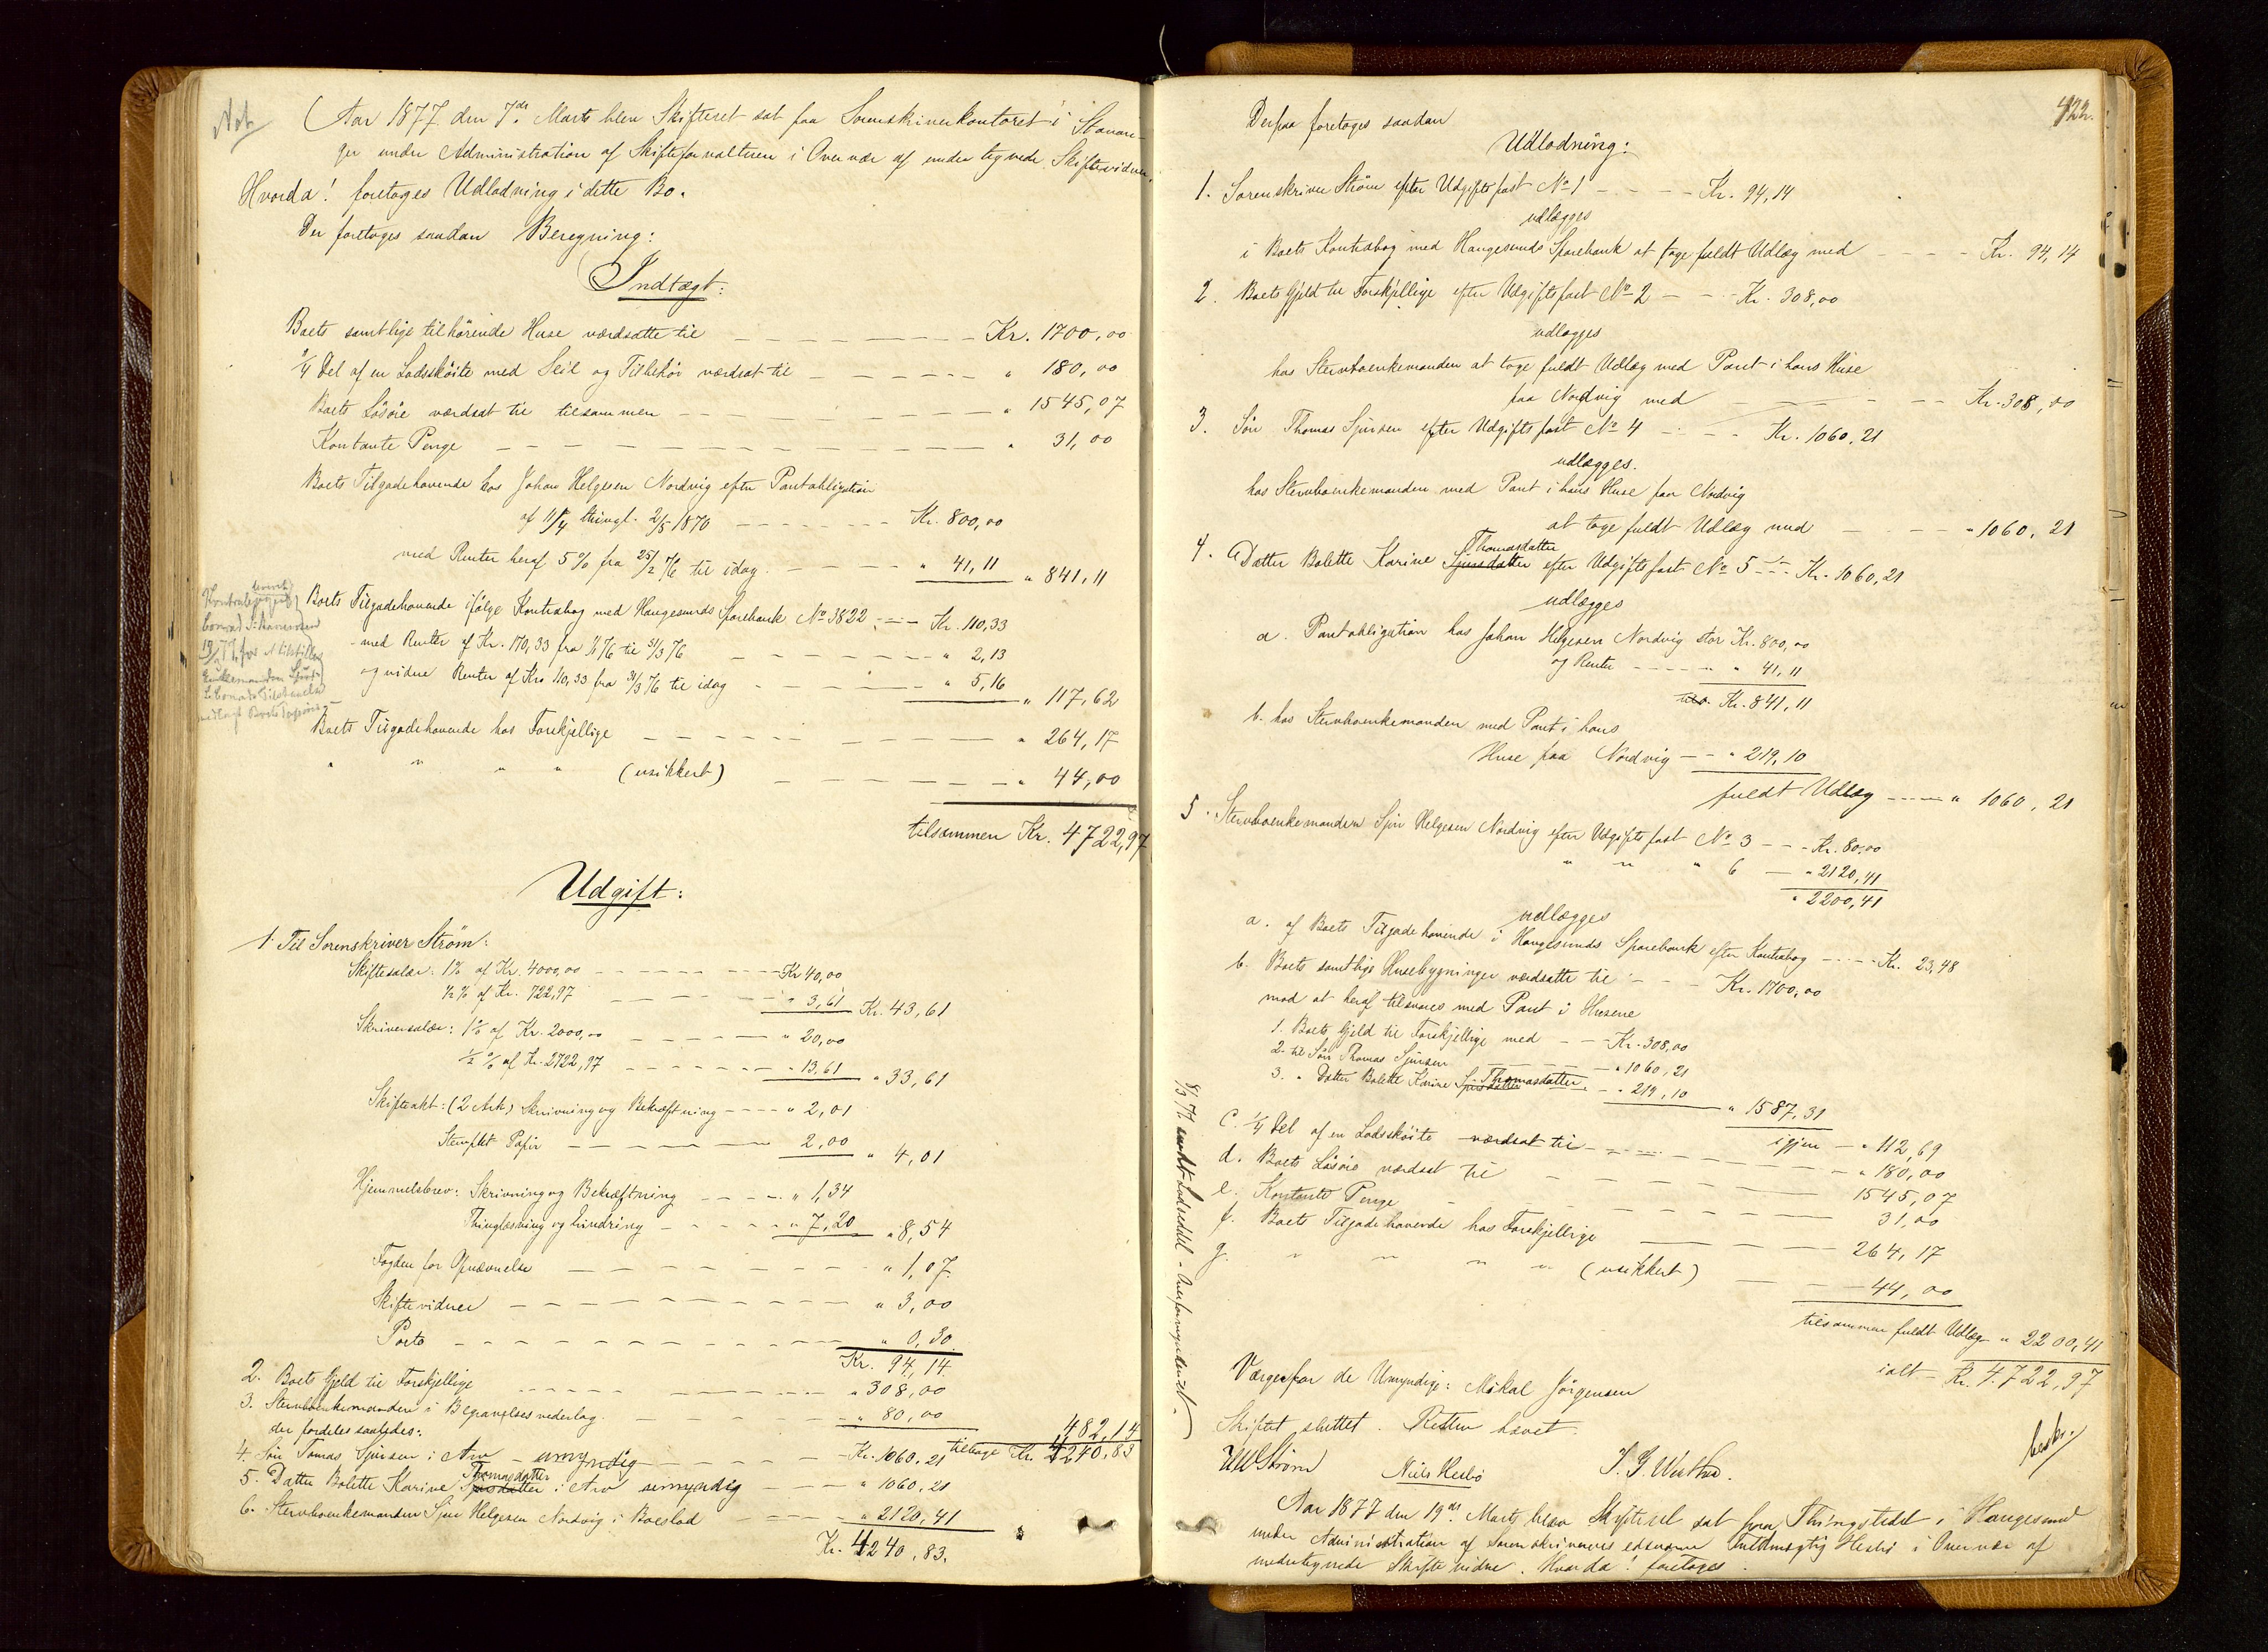 Aar 1877 den 7de Marts blev Skifteret sat paa Sorenskriverkontoret i Stavan-
ger under Administration af Skifteforvalteren i Overvær af undertegnede Skiftevidner.
Hvorda! foretoges Udlodning i dette Bo.
Der foretoges saadan Beregning:
Indtægt:
Boets samtlige tilhørende Huse værdsatte til Kr. 1700,00
1/4 Del af en Lodsskøite med Seil og Tilbehør værdsat til " 180,00
Boets Løsøre værdsat til tilsammen " 1545,07
Kontante Penge " 31,00
Boets Tilgodehavende hos Johan Helgesen Nordvig efter Pantobligation
af 11/4 thingl. 2/5 1870 Kr. 800,00
med Renter heraf 5% fra 25/2 76 til idag " 41,11 " 841,11
Boets Tilgodehavende ifølge Kontrabog med Haugesunds Sparebank No 3822 Kr. 110,33
med Renter af Kr. 170,33 fra 1/1 76 til 31/3 76 " 2,13
og videre Renter af Kr. 110,33 fra 31/3 76 til idag " 5,16 " 117,62
Boets Tilgodehavende hos Forskjellige " 264,17
" " " " (usikkert) " 44,00
tilsammen Kr. 4722,97
Udgift:
1. Til Sorenskriver Strøm:
Skiftesalær: 1% af Kr. 4000,00 Kr 40,00
1/2 % af Kr. 722,97 " 3,61 Kr. 43,61
Skriversalær: 1% af Kr. 2000,00 " 20,00
1/2 % af Kr. 2722,97 " 13,61 " 33,61
Skifteakt: (2 Ark) Skrivning og Bekræftning " 2,01
Stemplet Papir 2,00 " 4,01
Hjemmelsbrev: Skrivning og Bekræftning " 1,34
Thinglæsning og Eindring " 7,20 " 8,54
Fogden for Opnævnelse " 1,07
Skiftevidner " 3,00
Porto " 0,30
Kr. 94,14
2. Boets Gjeld til Forskjellige " 308,00
3. Stervboenkemanden i Begravelsesvederlag " 80,00 482,14
tilbage Kr. 4240,83
der fordeles saaledes:
4. Søn Tomas Sjursen i Arv umyndig Kr. 1060,21
5. Datter Bolette Karine Sjursdatter Thomasdatter i Arv umyndig " 1060,21
6. Stervboenkemanden Sjur Helgesen Nordvig i Boeslod " 2120,41
Kr. 4240,83.
422.
Derpaa foretoges saadan
Udlodning:
1. Sorenskriver Strøm efter Udgiftspost No 1 Kr. 94,14
udlægges
i Boets Kontrabog med Haugesunds Sparebank at tage fuldt Udlæg med Kr. 94,14
2. Boets Gjeld til Forskjellige efter Udgiftspost No 2 Kr. 308,00
udlægges
hos Stervboenkemanden at tage fuldt Udlæg med Pant i hans Huse
paa Nordvig med Kr. 308,00
3. Søn Thomas Sjursen efter Udgiftspost No 4 Kr. 1060,21
udlægges.
hos Stervboenkemanden med Pant i hans Huse paa Nordvig
at tage fuldt Udlæg med " 1060,21
4. Datter Bolette Karine Sjursdatter Thomasdatter efter Udgiftspost No 5 Kr. 1060,21
udlægges
a. Pantobligation hos Johan Helgesen Nordvig stor Kr. 800,00
og Renter " 41,11
Kr. 841,11
b. hos Stervboenkemanden med Pant i hans
Huse paa Nordvig " 219,10
fuldt Udlæg " 1060,21
5. Stervboenkemanden Sjur Helgesen Nordvig efter Udgiftspost No 3 Kr. 80,00
" " " 6 " 2120,41
" 2200,41
udlægges
a. af Boets Tilgodehavende i Haugesunds Sparebank efter Kontrabog Kr. 23,48
b. Boets samtlige Husebygninger værdsatte til Kr. 1700,00
mod at heraf tilsvares med Pant i Husene
1. Boets Gjeld til Forskjellige med Kr. 308,00
2. til Søn Thomas Sjursen " 1060,21
3. " Datter Bolette Karine Sjursdatter Thomasdatter " 219,10 " 1587,31
igjen " 112,69
c. 1/4 Del af en Lodsskøite værdsat til " 180,00
d. Boets Løsøre værdsat til 1545,07
e. Kontante Penge 31,00
f. Boets Tilgodehavende hos Forskjellige 264,17
g. " " " " (usikkert) 44,00
tilsammen fuldt Udlæg " 2200,41
ialt Kr. 4722,97
Værge for de Umyndige: Mikal Jørgensen
Skiftet sluttet. Retten hævet.
Niels Hesbø
Aar 1877 den 19de Marts blev Skifteret sat paa Thingstedet i Haugesund
under Administration af Sorenskriverens edsvorne Fuldmægtig Hesbø i Overvær af
undertegnede Skiftevidne. Hvorda! foretoges